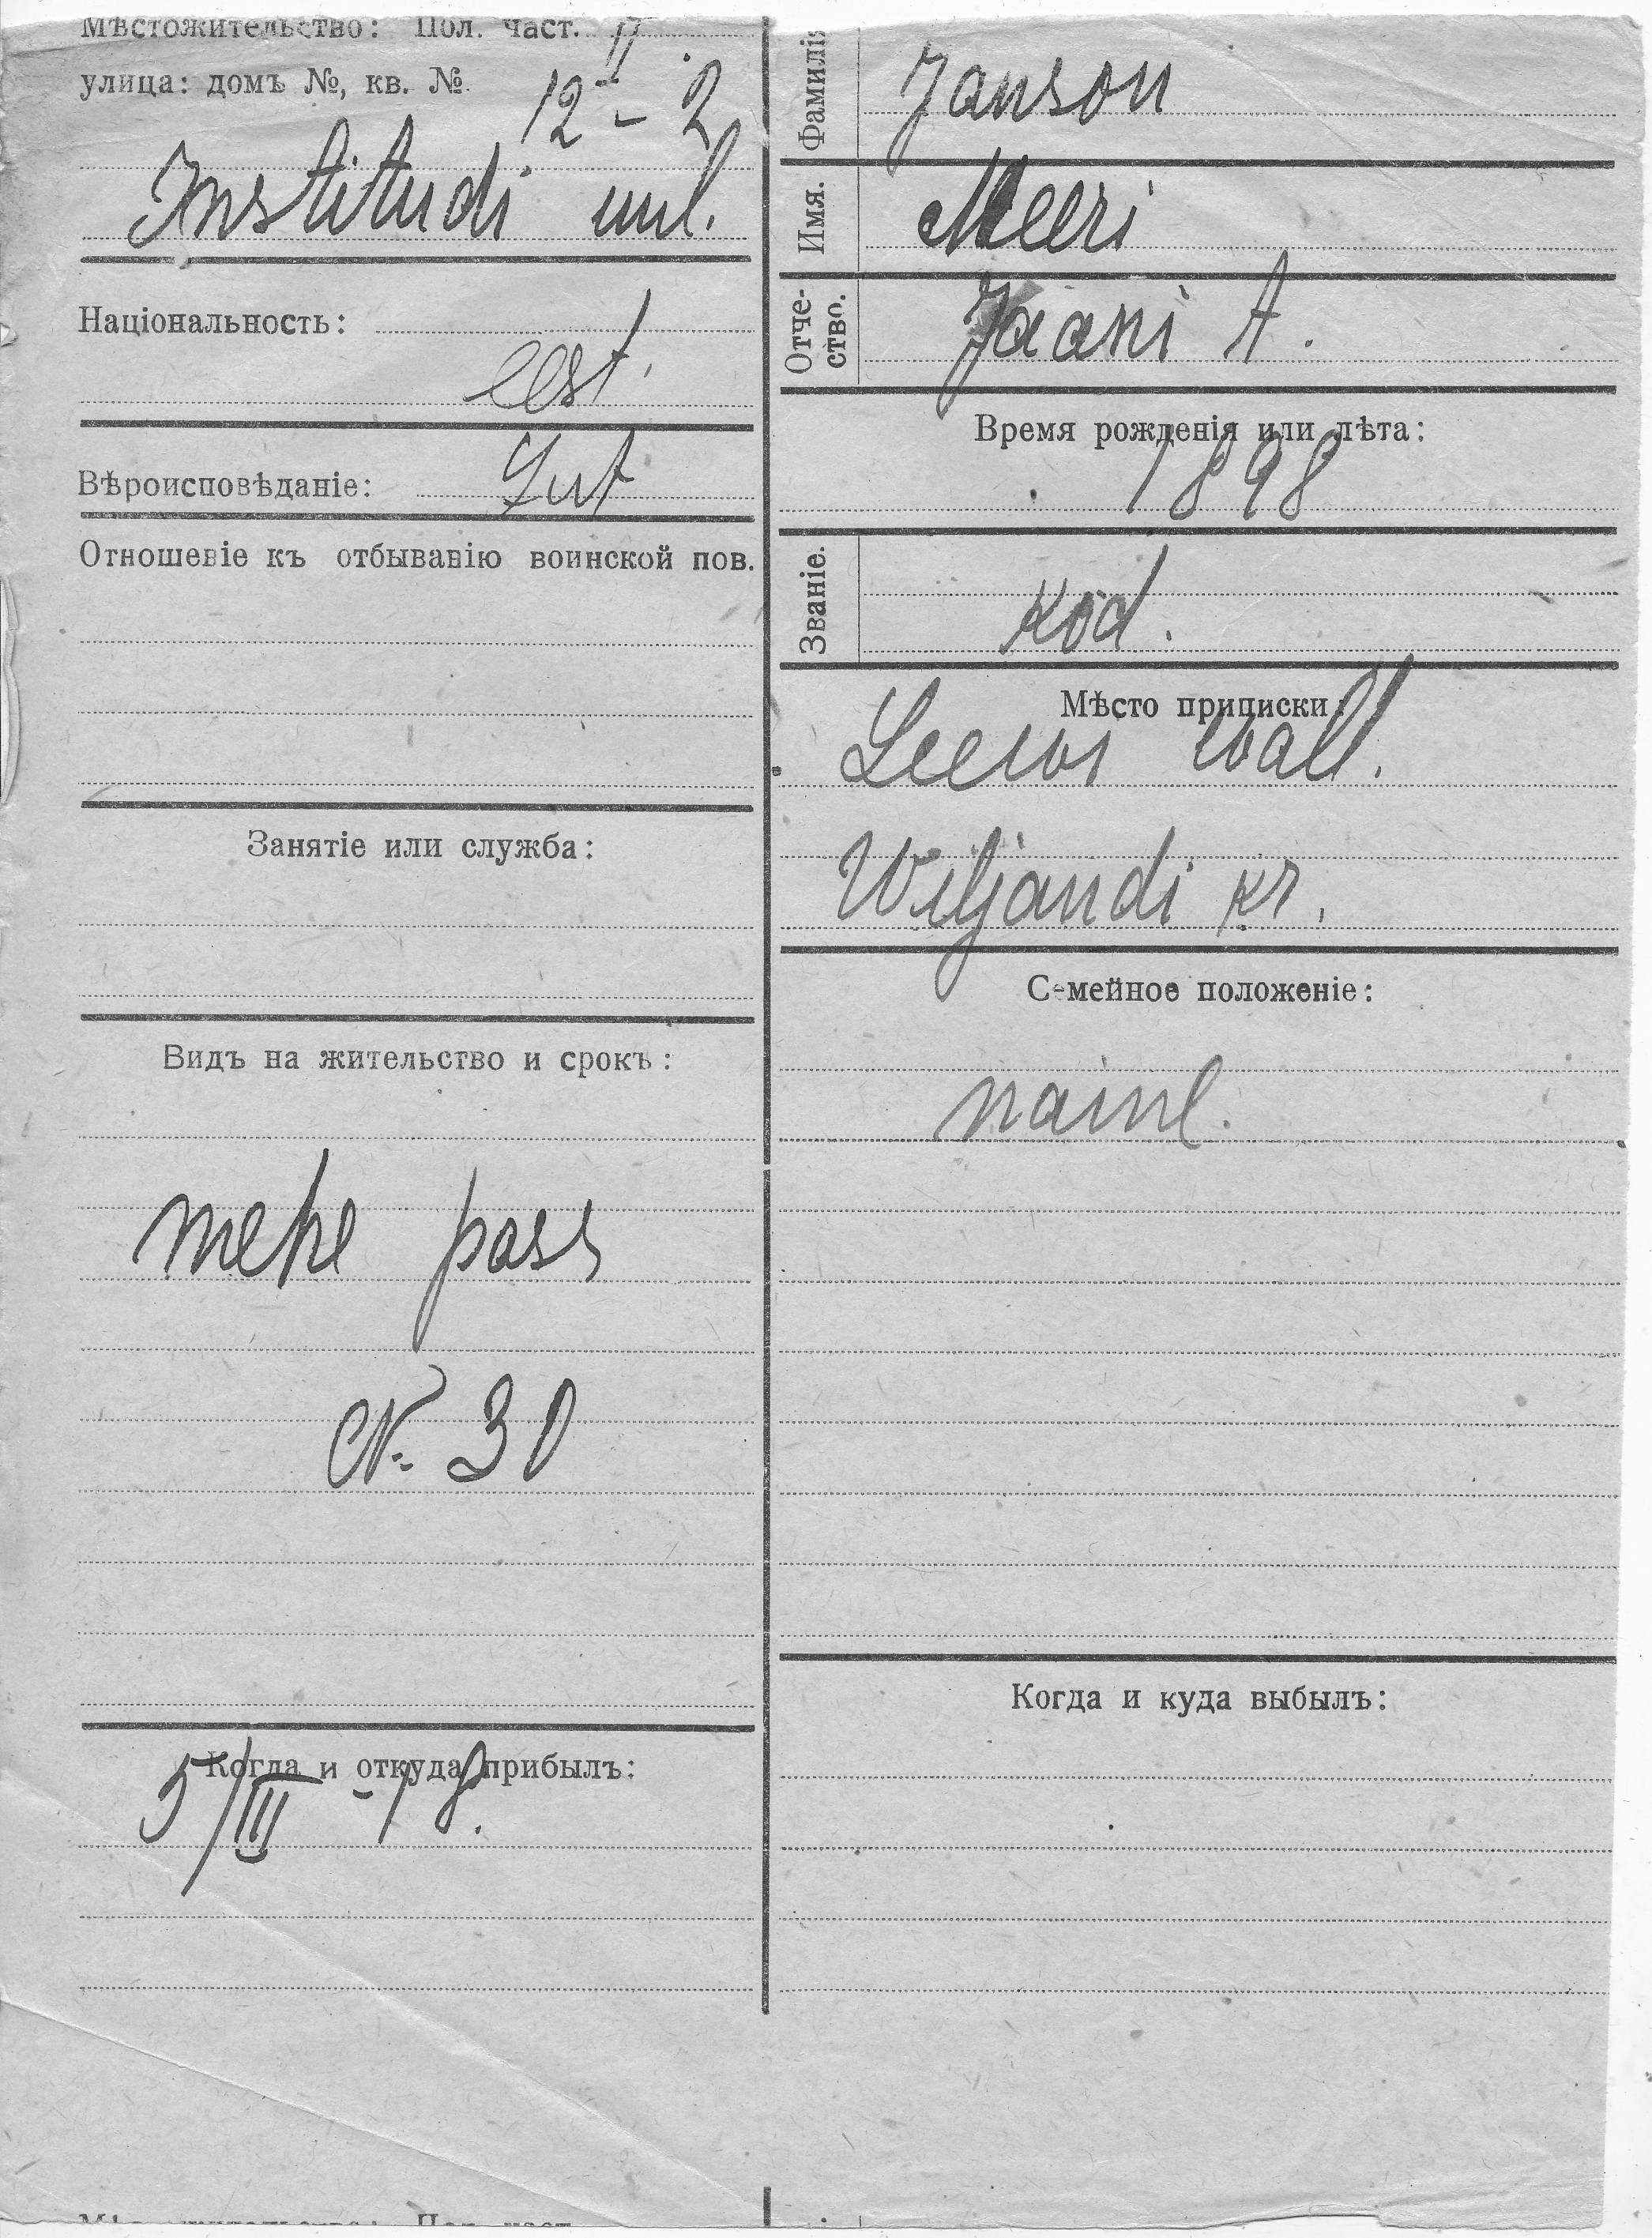 Мѣстожительство: Пол. част. II.
улица: домъ №, кв. №. 12 - 2
Institudi uul.
Національность:
eest.
Вѣроисповѣданіе: Lut
Отношеніе къ отбыванію воинской пов.
Занятіе или служба:
Видъ на жительство и срокъ:
mehe pass
№ 30
Когда и откуда прибылъ:
5/III -18.
Фамилія
Janson
Имя.
Meeri
Отче-
ство.
Jaani t.
Время рожденія или лѣта:
1898
Званіе.
kod.
Мѣсто приписки
Leewi wall.
Wiljandi kr.
Семейное положеніе:
nainl.
Когда и куда выбылъ: